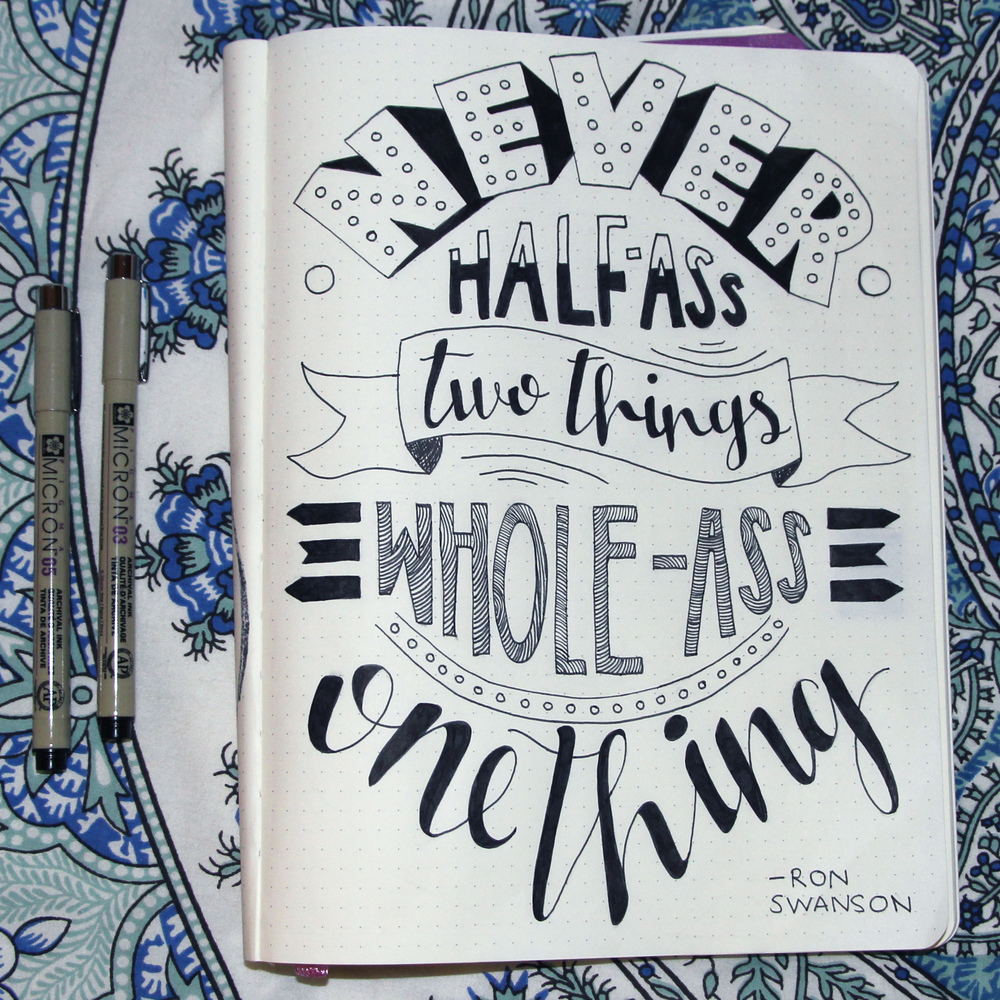 NEVER
HALF-ASS
two things
WHOLE-ASS
one thing
-RON
SWANSON
MICRON 05
ARCHIVAL INK
TINTA DE ARCHIVE
MICRON 03
ARCHIVAL INK
QUALITÉ D'ARCHIVAGE
TINTA DE ARCHIVE